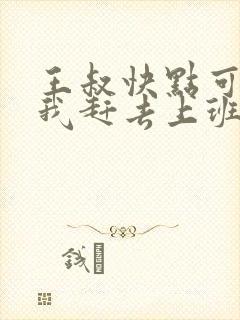 王叔快點可
我赶去上班